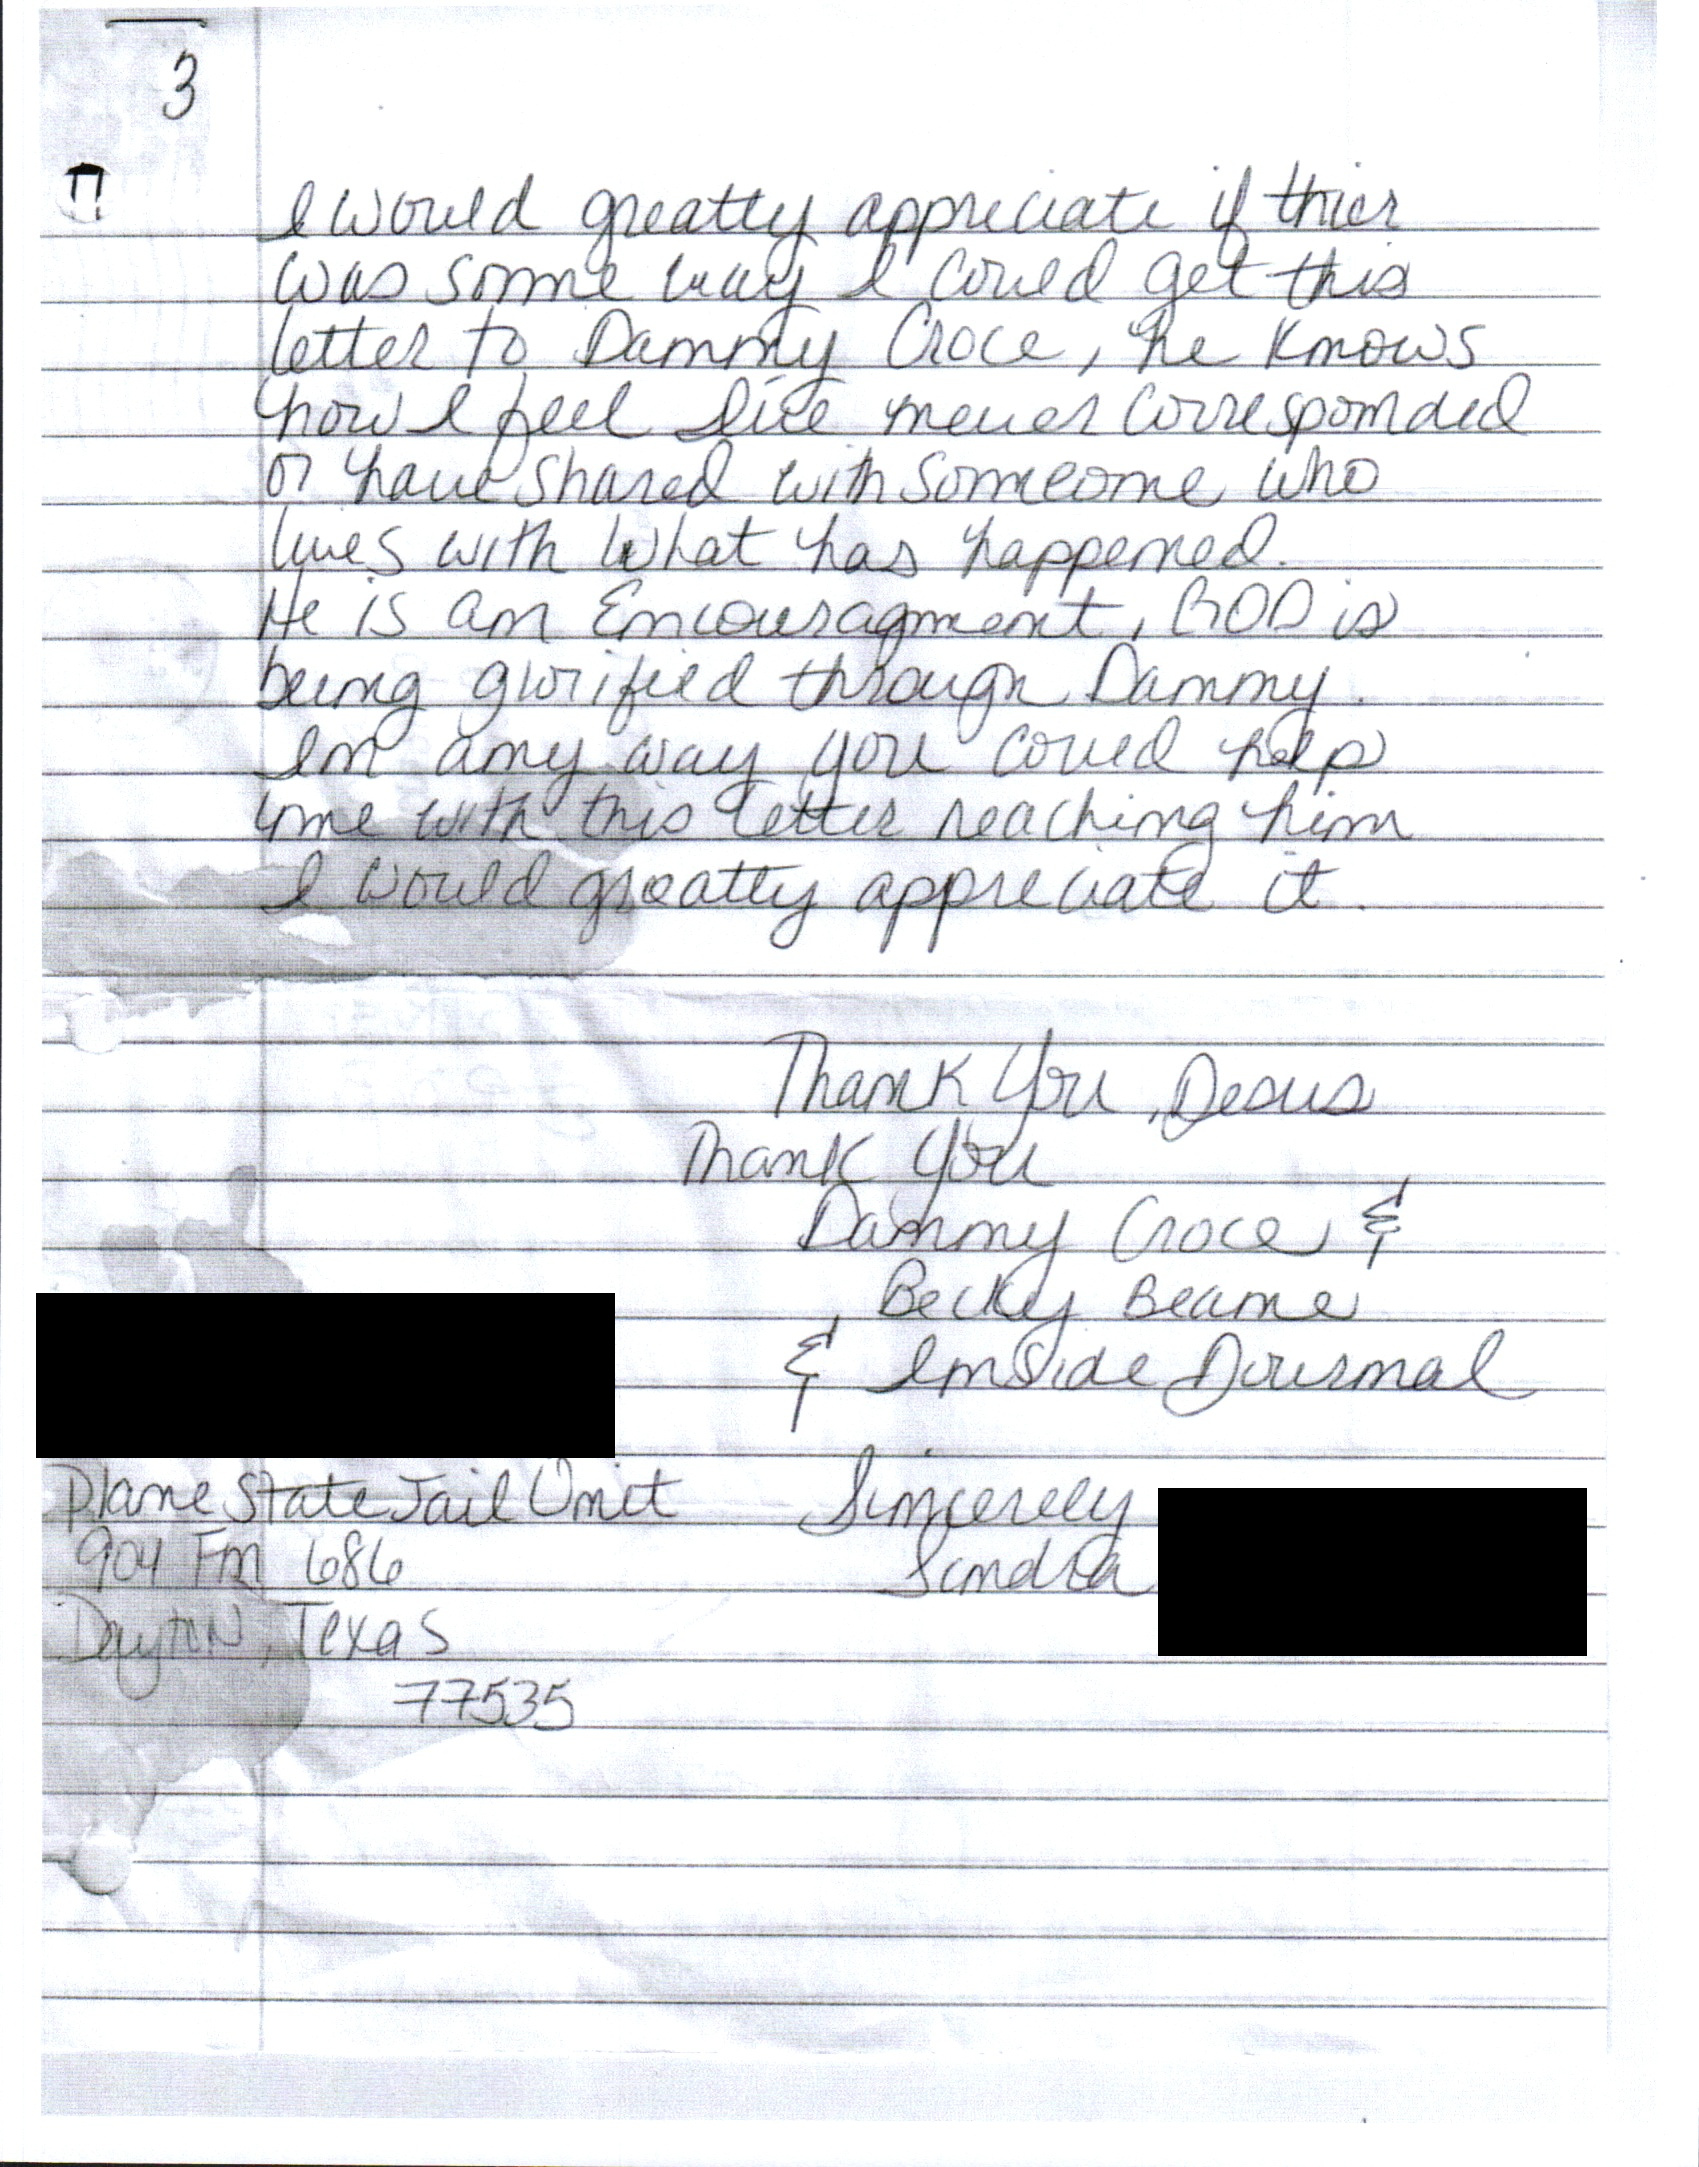 3
I would greatly appreciate if thier
was some way I could get this
letter to Danny Croce, he knows
how I feel Iive never corresponded
or have shared with someone who
lives with what has happened.
He is an Encouragment, GOD is
being glorified through Danny.
In any way you could help
me with this letter reaching him
I would greatly appreciate it.
Thank You, Jesus
Thank You
Danny Croce &
Becky Beane
& Inside Journal
Plane State Jail Unit
904 Fm 686
Dayton, Texas
77535
Sincerely
Sandra